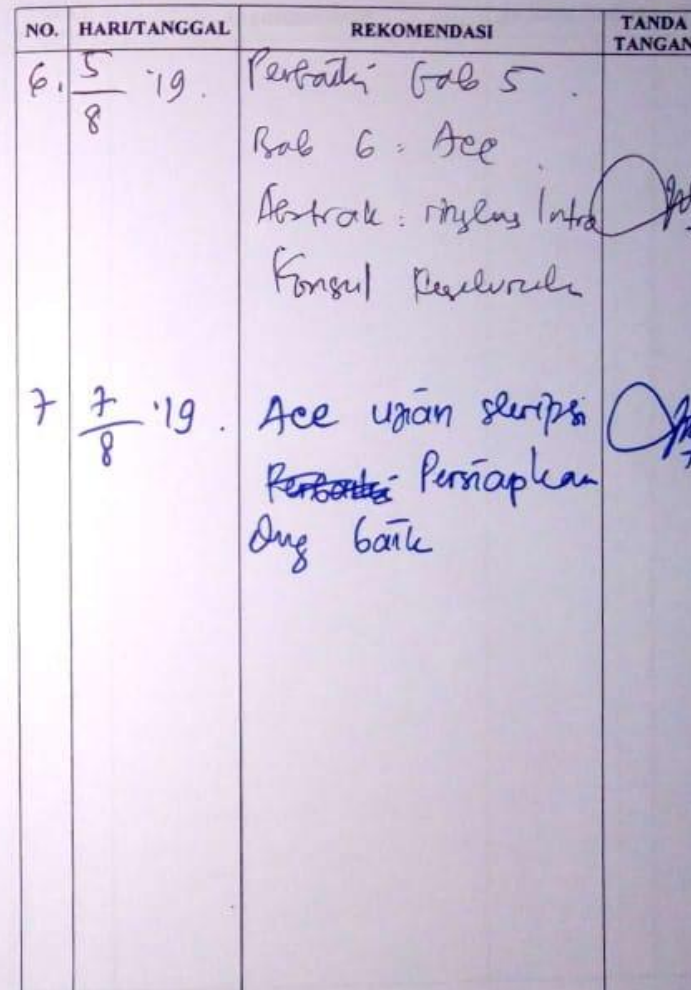 NO. HARI/TANGGAL REKOMENDASI TANDA TANGAN
6. 5/8 '19. Perbaiki bab 5.
Bab 6 : Acc
Abstrak : ringkas Intro
Konsul Keseluruhan
7 7/8 '19. Acc ujian skripsi
Persiapkan
dng baik